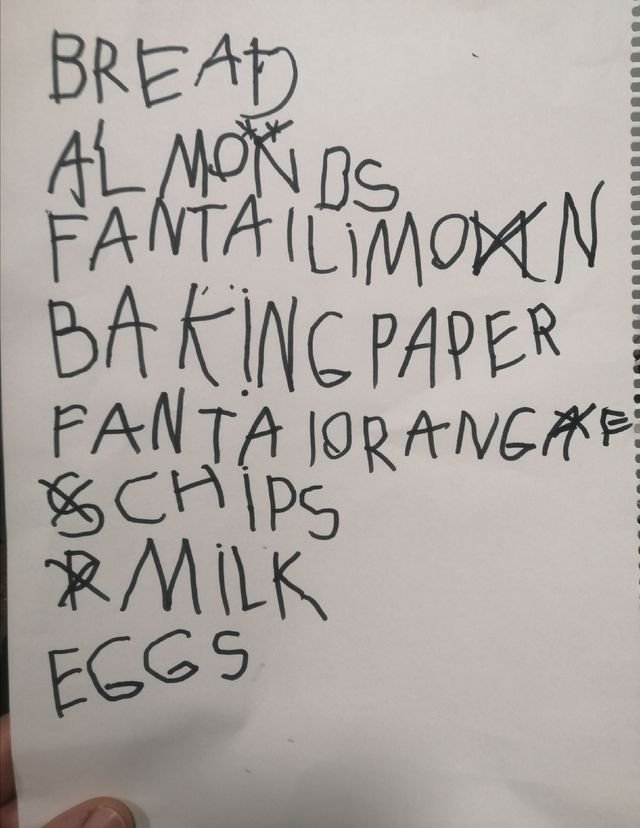 BREAD
ALMONDS
FANTA 1 LiMON
BAKING PAPER
FANTA 1 ORANGE
CHiPS
MiLK
EGGS